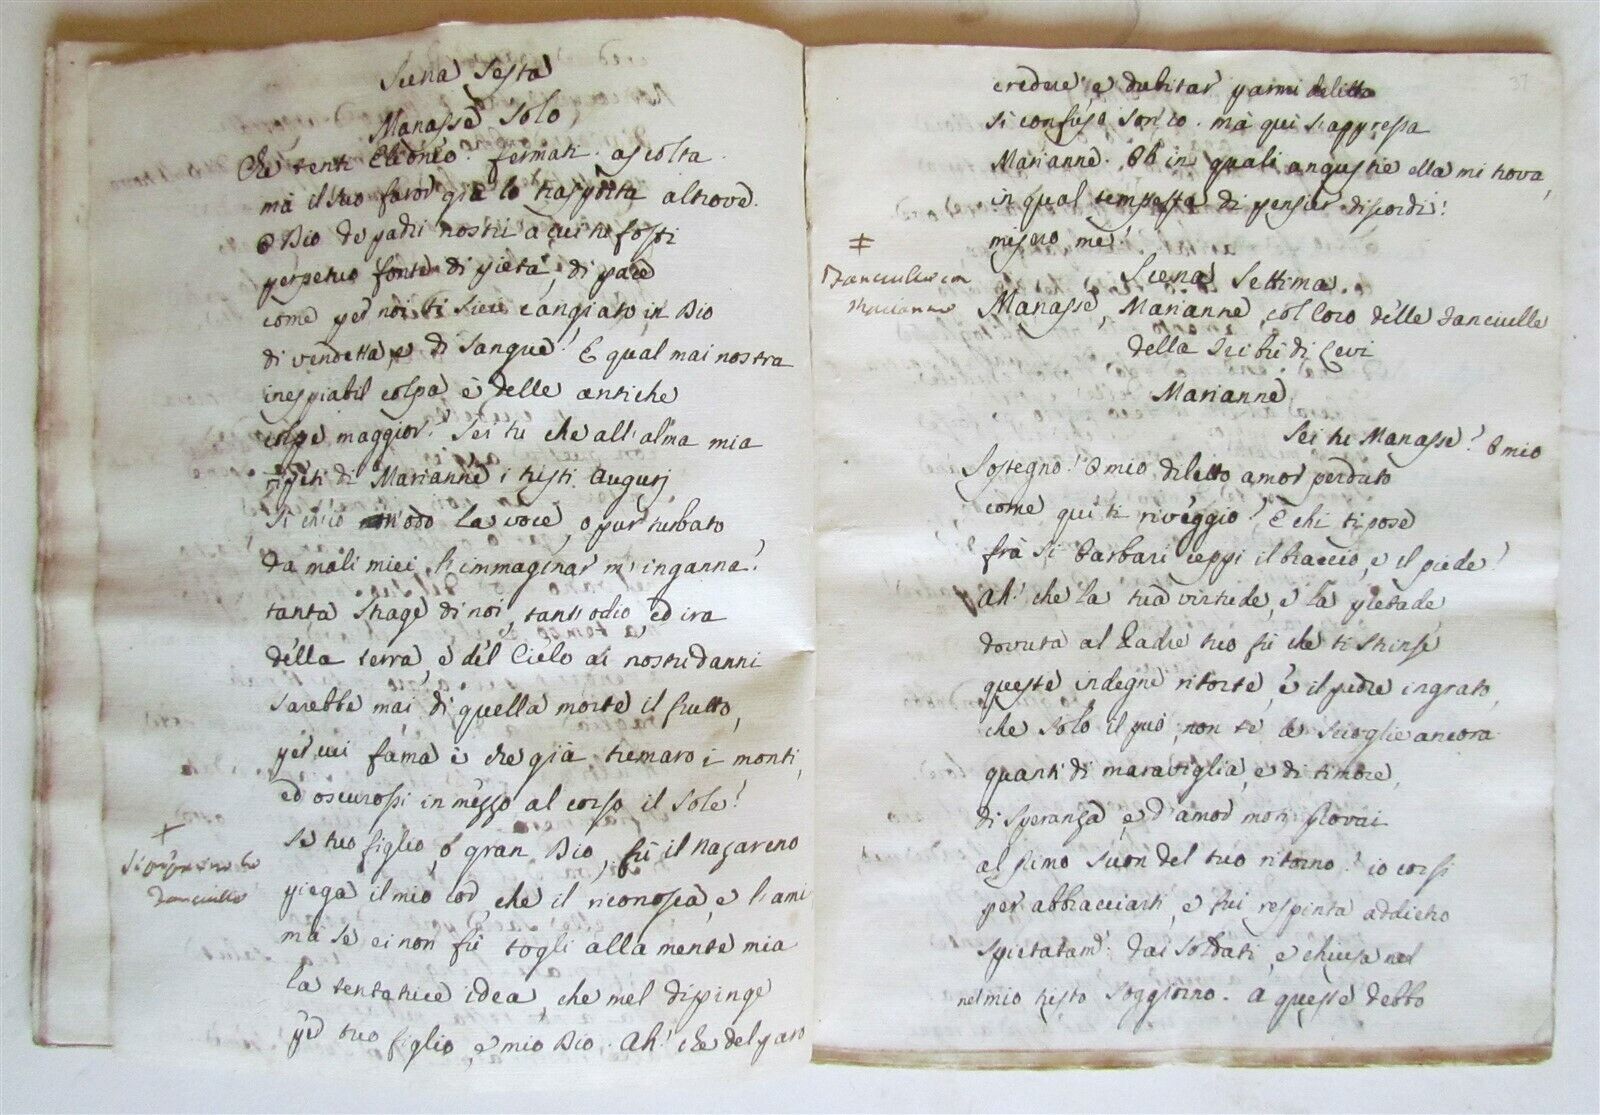 Scena Sesta
Manasse solo
Che tenti Eleoneo. fermati. ascolta.
mà il suo furor già lo trasporta altrove.
O Dio de padri nostri a cui tu fosti
perpetuo fonte di pietà, di pace
come per noi ti sieie cangiato in Dio
di vendetta, e di sangue! E qual mai nostra
inespiabil colpa è delle antiche
colpe maggior? Sei tu che all'alma mia
ripeti di Marianne i tristi augurj
Si ch'io non odo la voce, o pur turbato
da mali miei l'immaginar m'inganna?
tanta strage di noi, tant'odio, ed ira
della terra, e del Cielo ai nostri danni
sarebbe mai di quella morte il frutto,
per cui fama è che già tremaro i monti,
ed oscurossi in mezzo al corso il sole?
Se tuo figlio, o gran Dio, fù il Nazareno
piega il mio cor, che il riconosca, e l'ami
mà se ei non fù togli alla mente mia
la tentatrice idea, che mel dipinge
per tuo figlio, e mio Dio. Ah! che del paro
+
Si
Fanciulle
37
credere, e dubitar parmi delitto
si confuso son'io. mà qui s'appressa
Marianne. Oh in quali angustie ella mi trova,
in qual tempesta di pensier discordi!
misero me!
‡
Fanciulle con
Marianne
Scena Settima.
Manasse, Marianne, col Coro delle Fanciulle
della Tribù di Levi
Marianne
Sei tu Manasse? O mio
Sostegno! O mio diletto amor perduto
come qui ti riveggio? E chi ti pose
frà sì barbari ceppi il braccio, e il piede?
Ah! che la tua virtude, e la pietade
dovuta al Padre tuo fù che ti strinse
queste indegne ritorte, e il padre ingrato,
che solo il può, non te le scioglie ancora.
quanti di maraviglia, e di timore,
di speranza, e d'amor moti provai
al primo suon del tuo ritorno! io corsi
per abbracciarti, e fui respinta addietro
spietatam.e dai soldati, e chiusa nel
nel mio tristo soggiorno. a queste debbo